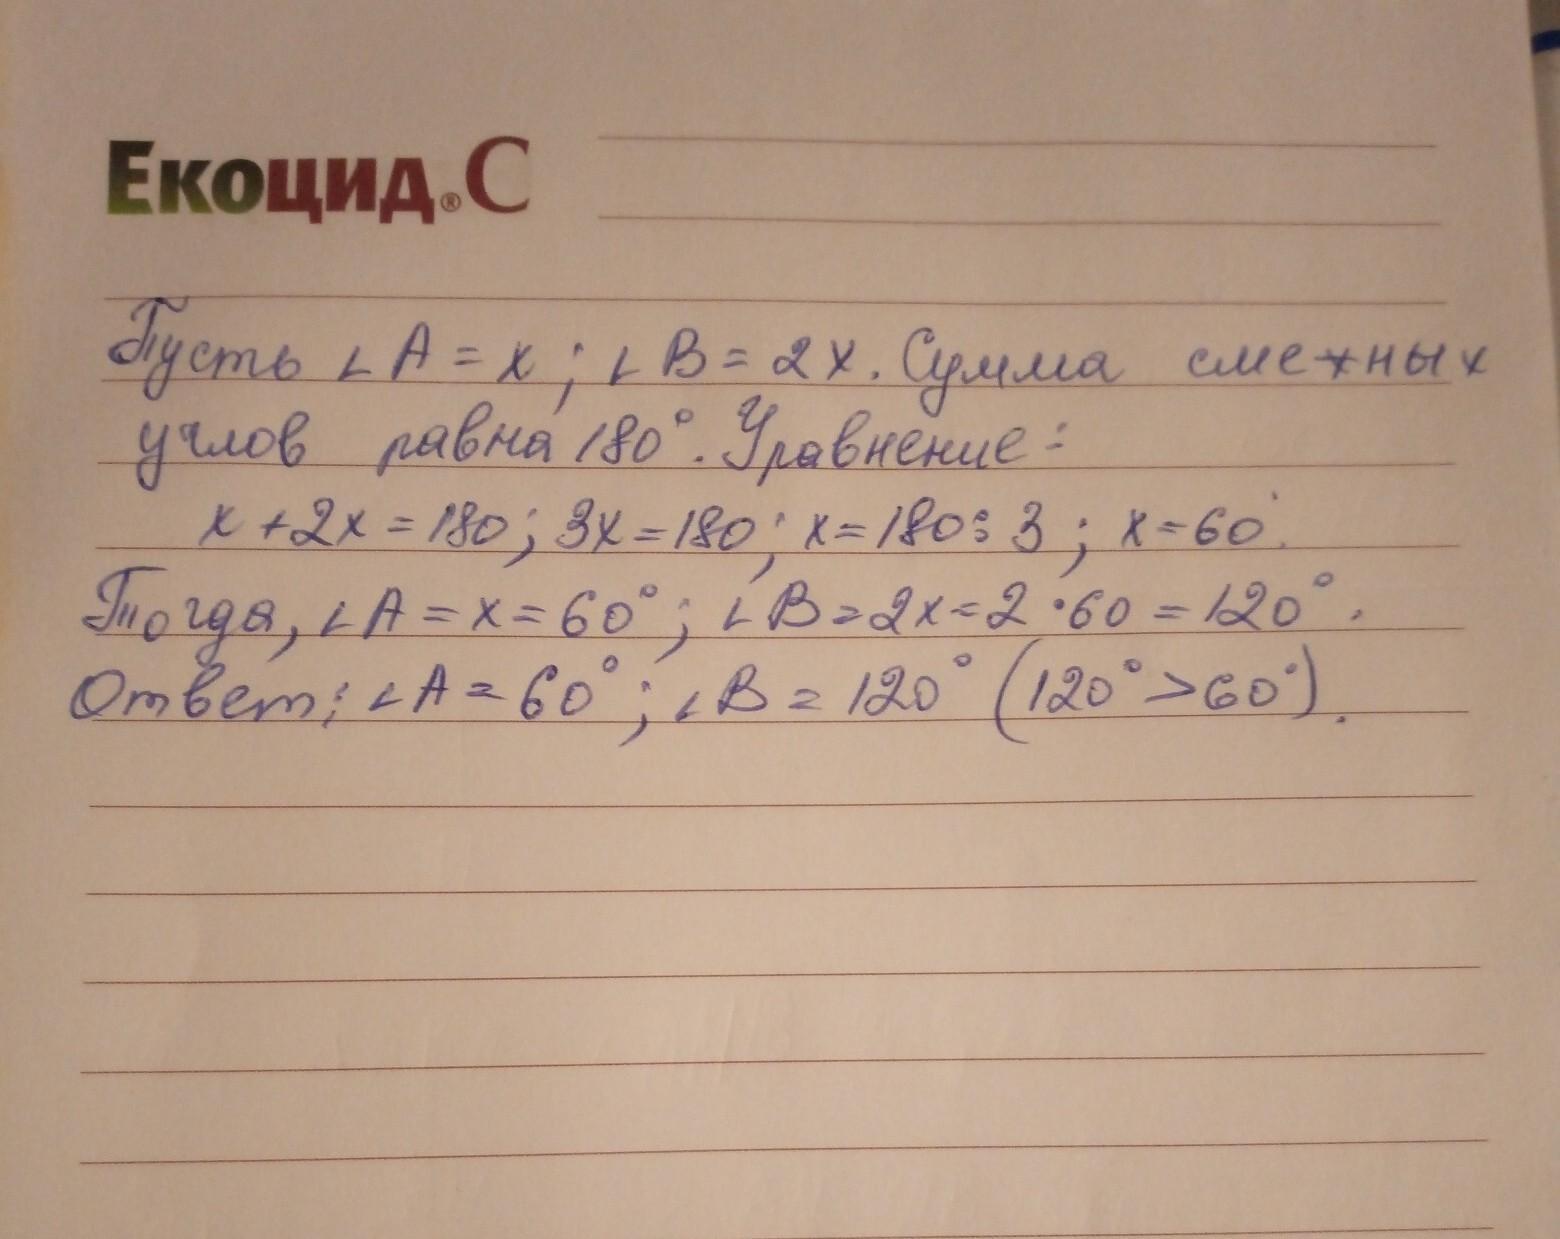 Екоцид® С
Пусть ∠A = x; ∠B = 2x. Сумма смежных
углов равна 180°. Уравнение:
x + 2x = 180; 3x = 180; x = 180 : 3; x = 60.
Тогда, ∠A = x = 60°; ∠B = 2x = 2 · 60 = 120°.
Ответ: ∠A = 60°; ∠B = 120° (120° > 60°).